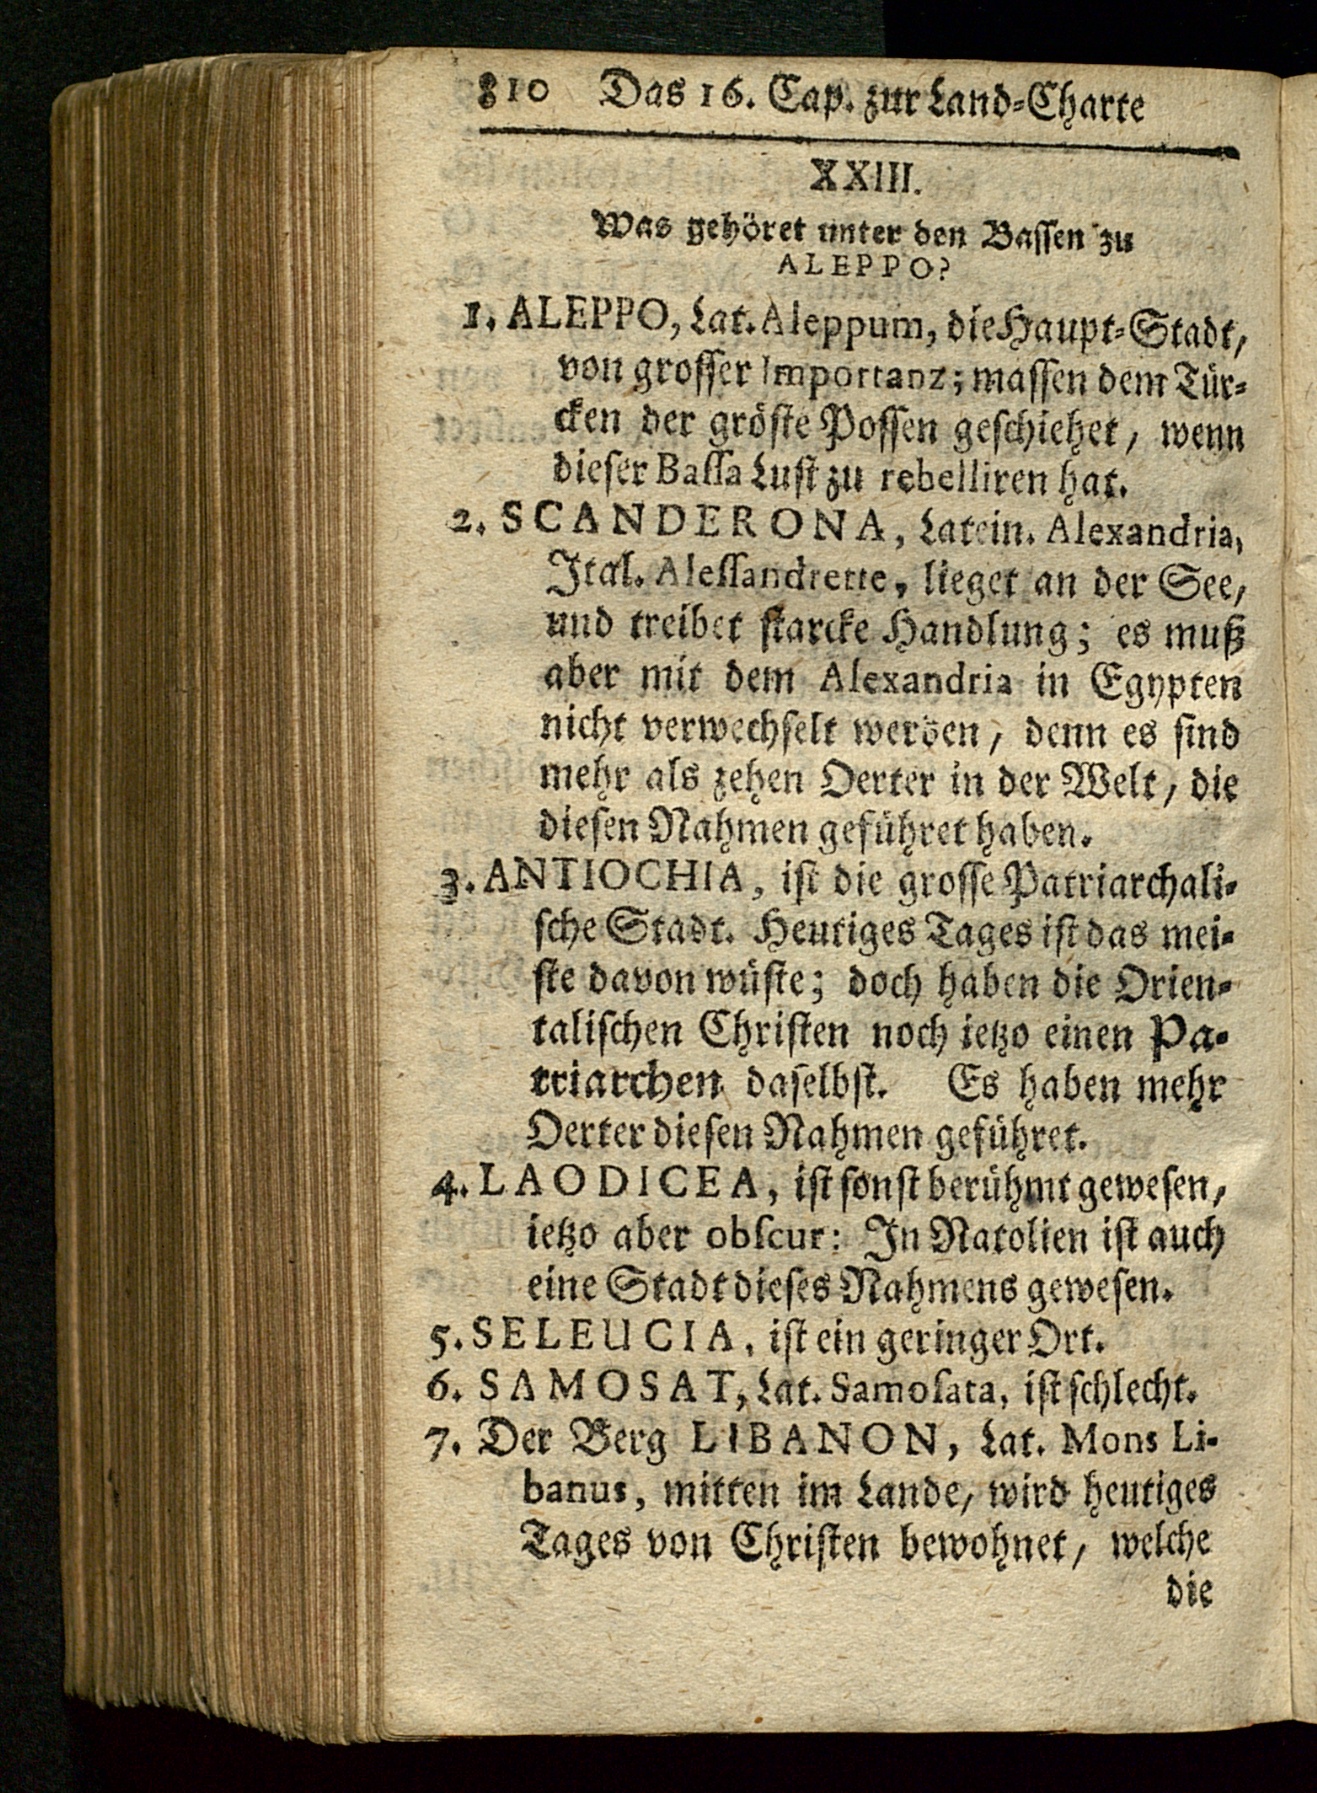 810 Das 16. Cap. zur Land-Charte
XXIII.
Was gehöret unter den Bassen zu
ALEPPO?
1. ALEPPO, Lat. Aleppum, die Haupt-Stadt,
von grosser Importanz; massen dem Tür-
cken der gröste Possen geschiehet, wenn
dieser Bassa Lust zu rebelliren hat.
2. SCANDERONA, Latein. Alexandria,
Ital. Alessandrette, lieget an der See,
und treibet starcke Handlung; es muß
aber mit dem Alexandria in Egypten
nicht verwechselt werden, denn es sind
mehr als zehen Oerter in der Welt, die
diesen Nahmen geführet haben.
3. ANTIOCHIA, ist die grosse Patriarchali-
sche Stadt. Heutiges Tages ist das mei-
ste davon wüste; doch haben die Orien-
talischen Christen noch ietzo einen Pa-
triarchen daselbst. Es haben mehr
Oerter diesen Nahmen geführet.
4. LAODICEA, ist sonst berühmt gewesen,
ietzo aber obscur: In Natolien ist auch
eine Stadt dieses Nahmens gewesen.
5. SELEUCIA, ist ein geringer Ort.
6. SAMOSAT, Lat. Samosata, ist schlecht.
7. Der Berg LIBANON, Lat. Mons Li-
banus, mitten im Lande, wird heutiges
Tages von Christen bewohnet, welche
die